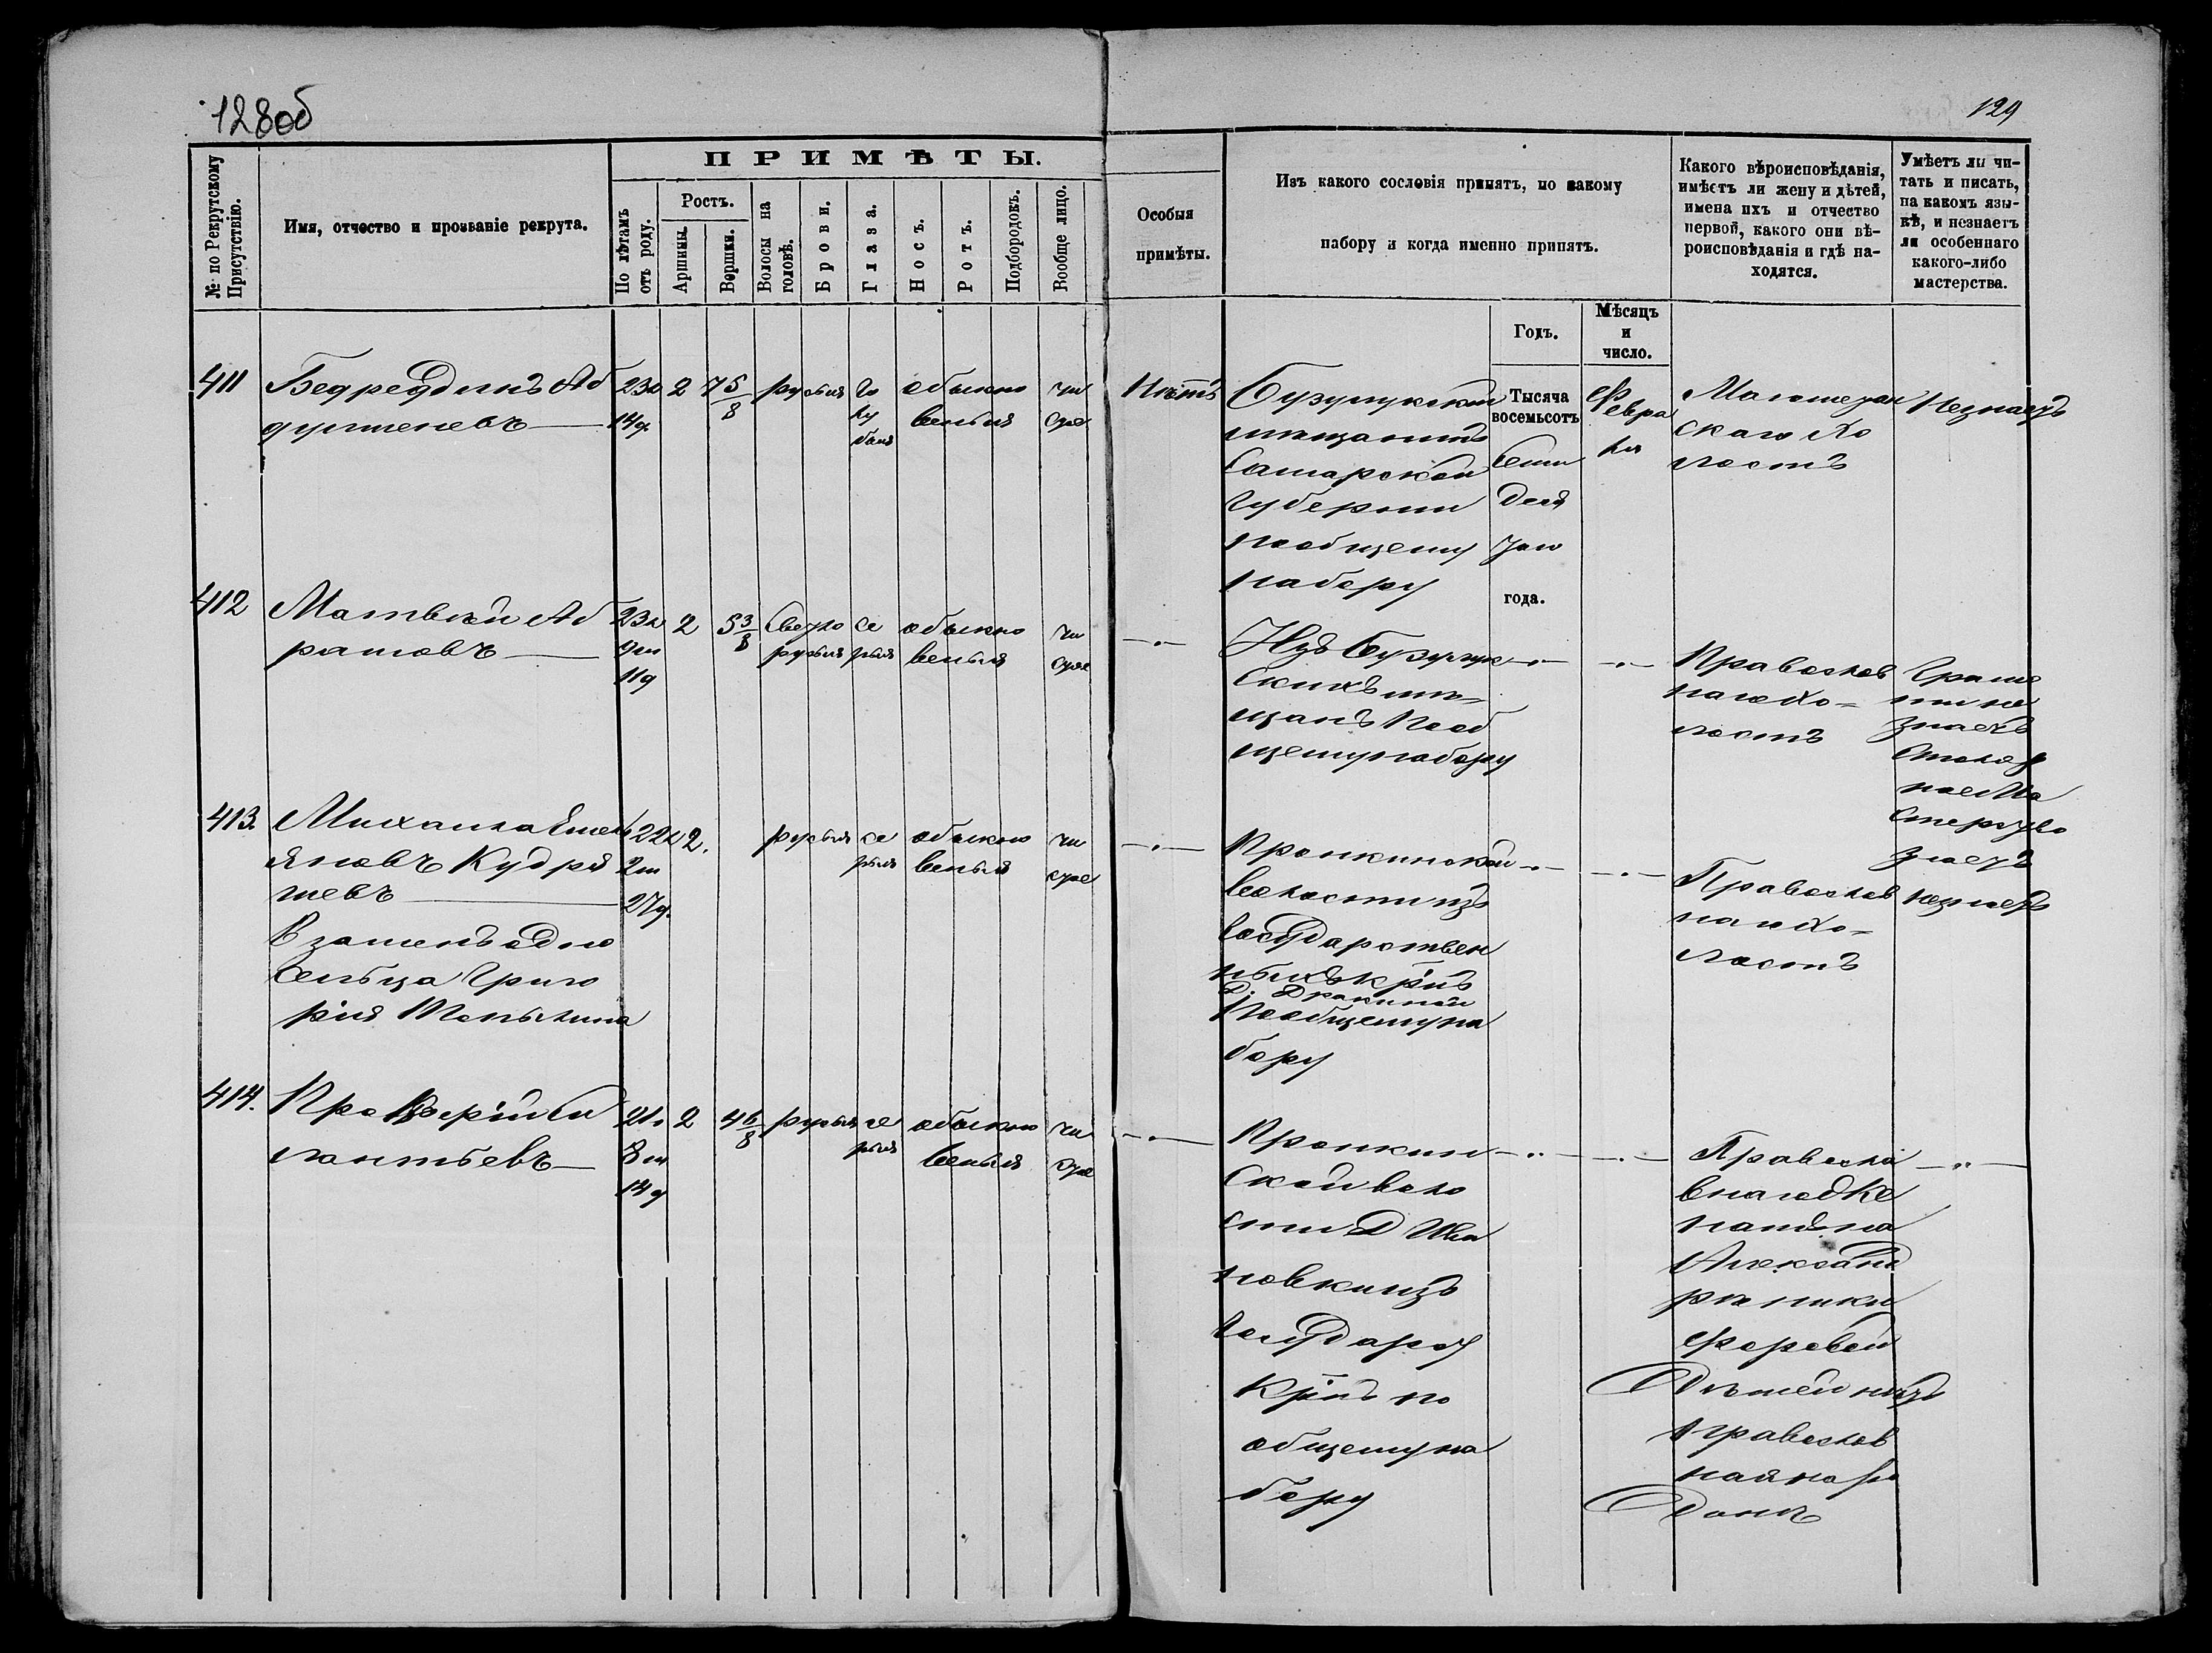 128об
129
№ по Рекрутскому
Присутствію.
Имя, отчество и прозваніе рекрута.
ПРИМѢТЫ.
По лѣтамъ
отъ роду.
Ростъ.
Аршины.
Вершки.
Волосы на
головѣ.
Брови.
Глаза.
Носъ.
Ротъ.
Подбородокъ.
Вообще лицо.
Особыя
примѣты.
Изъ какого сословія принятъ, по какому
набору и когда именно принятъ.
Годъ.
Мѣсяцъ
и
число.
Какого вѣроисповѣданія,
имѣетъ ли жену и дѣтей,
имена ихъ и отчество
первой, какого они вѣ-
роисповѣданія и гдѣ на-
ходятся.
Умѣетъ ли чи-
тать и писать,
на какомъ язы-
кѣ, и незнаетъ
ли особеннаго
какого-либо
мастерства.
411
Бедрединъ Аб
23л
14д.
2
7 5/8
русыя
го
лу
быя
обыкно
веныя
чи
стое
Нѣтъ
Бузулукской
мѣщанинъ
Самарской
Губерніи
пообщему
набору
Тысяча
восемьсотъ
Семи
деся
таго
года.
Февра
ля
Магометан
скаго Хо
лостъ
Незнаетъ
412
Матвѣй Аб
рамовъ
23л
9м
11д
2
5 3/8
Светло
русыя
се
рыя
обыкно
веныя
чи
стое
Изъ Бузулук
скихъ мѣ=
щанъ Пооб
щему набору
Православ
наго Хо=
лостъ
Грамо
ти не
знаетъ
Столяр
ное Ма
стерство
знаетъ
413.
Михаила Емель
яновъ Кудря
шевъ
В заменъ одно
сельца Григо
рія
22л
2м
27д.
2.
русыя
се
рыя
обыкно
веныя
чи
стое
Пронкинской
волости изъ
Государствен
ныхъ крнъ
Пообщему на
бору
Православ
наго Хо=
лостъ
незнаетъ
414.
21л
8м
14д
2
4 6/8
русыя
се
рыя
обыкно
веныя
чи
стое
Пронкин
ской воло
сти Д Ива
новки изъ
Государст
Крнъ по
общему на
бору
Правосла
внаго Же
натъ на
Александ
рѣ Ники
форовой
Дѣтей нѣтъ
православ
ная на ро
динѣ